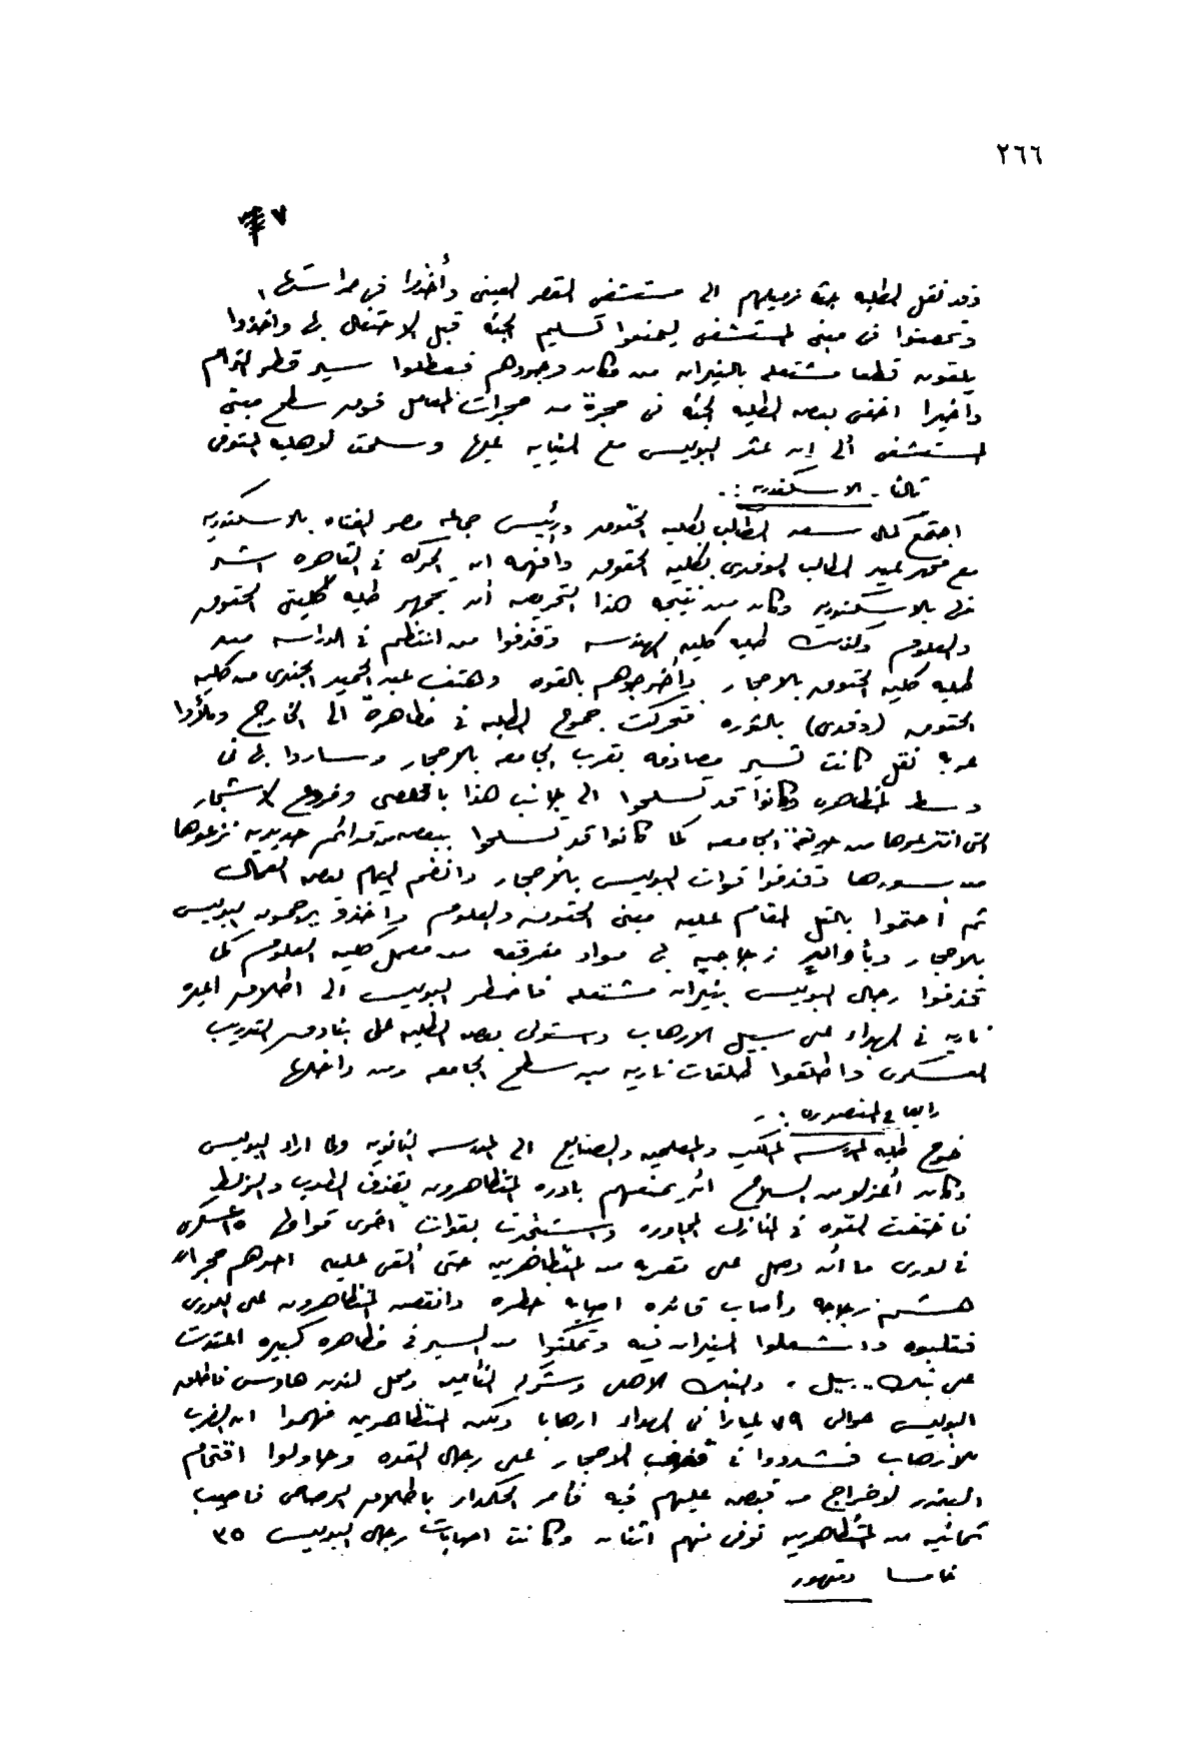 ٢٦٦
٧
وقد نقل الطلبه جثة زميلهم الى مستشفى القصر العينى وأخذوا فى حراستها
وتحصنوا فى مبنى المستشفى ليمنعوا تسليم الجثه قبل الاحتفال بها واخذوا
يلقون قطعا مشتعله بالنيران من مكان وجودهم فعطلوا سير قطر الترام
واخيرا اخفى بعض الطلبه الجثه فى حجرة من حجرات المعامل فوق سطح مبنى
المستشفى الى ان عثر البوليس مع النيابه عليها وسلمت لاهليه المتوفى
ثالثا - الاسكندريه :-
اجتمع كمال سعد الطالب بكليه الحقوق ورئيس جماعه مصر الفتاه بالاسكندريه
مع الطالب الوفدى بكليه الحقوق وافهمه ان الحركه فى القاهره اشد
منها بالاسكندريه وكان من نتيجه هذا التحريض أن تجمهر طلبه كليتى الحقوق
والعلوم وكذلك طلبه كليه الهندسه وقذفوا من انتظم فى الدراسه من
طلبه كليه الحقوق بالاحجار وأخرجوهم بالقوه وهتف عبد الحميد الجندى من كليه
الحقوق (وفدى) بالثوره فتحركت جموع الطلبه فى مظاهرة الى الخارج وملأوا
عربه نقل كانت تسير مصادفه بقرب الجامعه بالاحجار وساروا بها فى
وسط المظاهره وكانوا قد تسلحوا الى جانب هذا بالعصى وفروع الاشجار
التى انتزعوها من حديقة الجامعه كما كانوا قد تسلحوا ببعض قوائم حديديه نزعوها
من سورها وقذفوا قوات البوليس بالأحجار وانضم اليهم بعض العمال
ثم أحتموا بالتل المقام عليه مبنى الحقوق والعلوم واخذو يرجمون البوليس
بالاحجار وبأوانى زجاجيه بها مواد مفرقعه من معمل كليه العلوم كما
قذفوا رجال البوليس بنيران مشتعله فاضطر البوليس الى اطلاق اعيره
ناريه فى الهواء على سبيل الارهاب واستولى بعض الطلبه على بنادق التدريب
العسكرى واطلقوا طلقات ناريه من سطح الجامعه ومن داخلها
رابعا - المنصوره :-
خرج طلبه المدرسه الملكيه والمعلمين والصنايع الى المدرسه الثانويه ولما اراد البوليس
وكان أعزلا من السلاح ان يمنعهم بادره المتظاهرون بقذف الطوب والزلط
فاختفت القوه فى المنازل المجاوره واستنجدت بقوات اخرى قوامها ١٥ عسكرى
فى لورى ما أن وصل على مقربه من المتظاهرين حتى القى عليه احدهم حجرا
هشم زجاجه وأصاب قائده اصابه خطره وانقض المتظاهرون على اللورى
فقلبوه واشعلوا النيران فيه وتمكنوا من السير فى مظاهره كبيره اعتدت
على بنك . والبنك الاهلى وشركه التأمين ومحل لندن هاوس فاطلق
البوليس حوالى ٧٩ عيارا فى الهواء ارهابا ولكن المتظاهرين فهموا ان الضرب
للأرهاب فشددوا فى قذف الاحجار على رجال القوه وحاولوا اقتحام
البندر لاخراج من قبض عليهم فيه فأمر الحكمدار باطلاق الرصاص فاصيب
ثمانيه من المتظاهرين توفى منهم اثنان وكانت اصابات رجال البوليس ٣٥
خامسا دمنهور